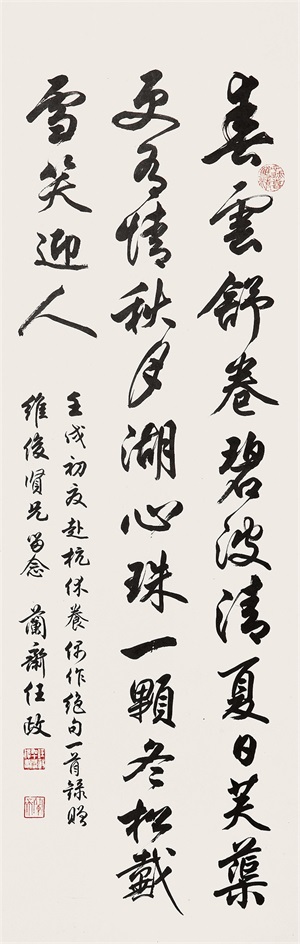 春雲舒卷碧波清夏日芙蕖
更多情秋月湖心珠一顆冬松戴
雪笑迎人
壬戌初夏赴杭休養偶作绝句一首録贈
維俊賢兄留念 蘭齋任政